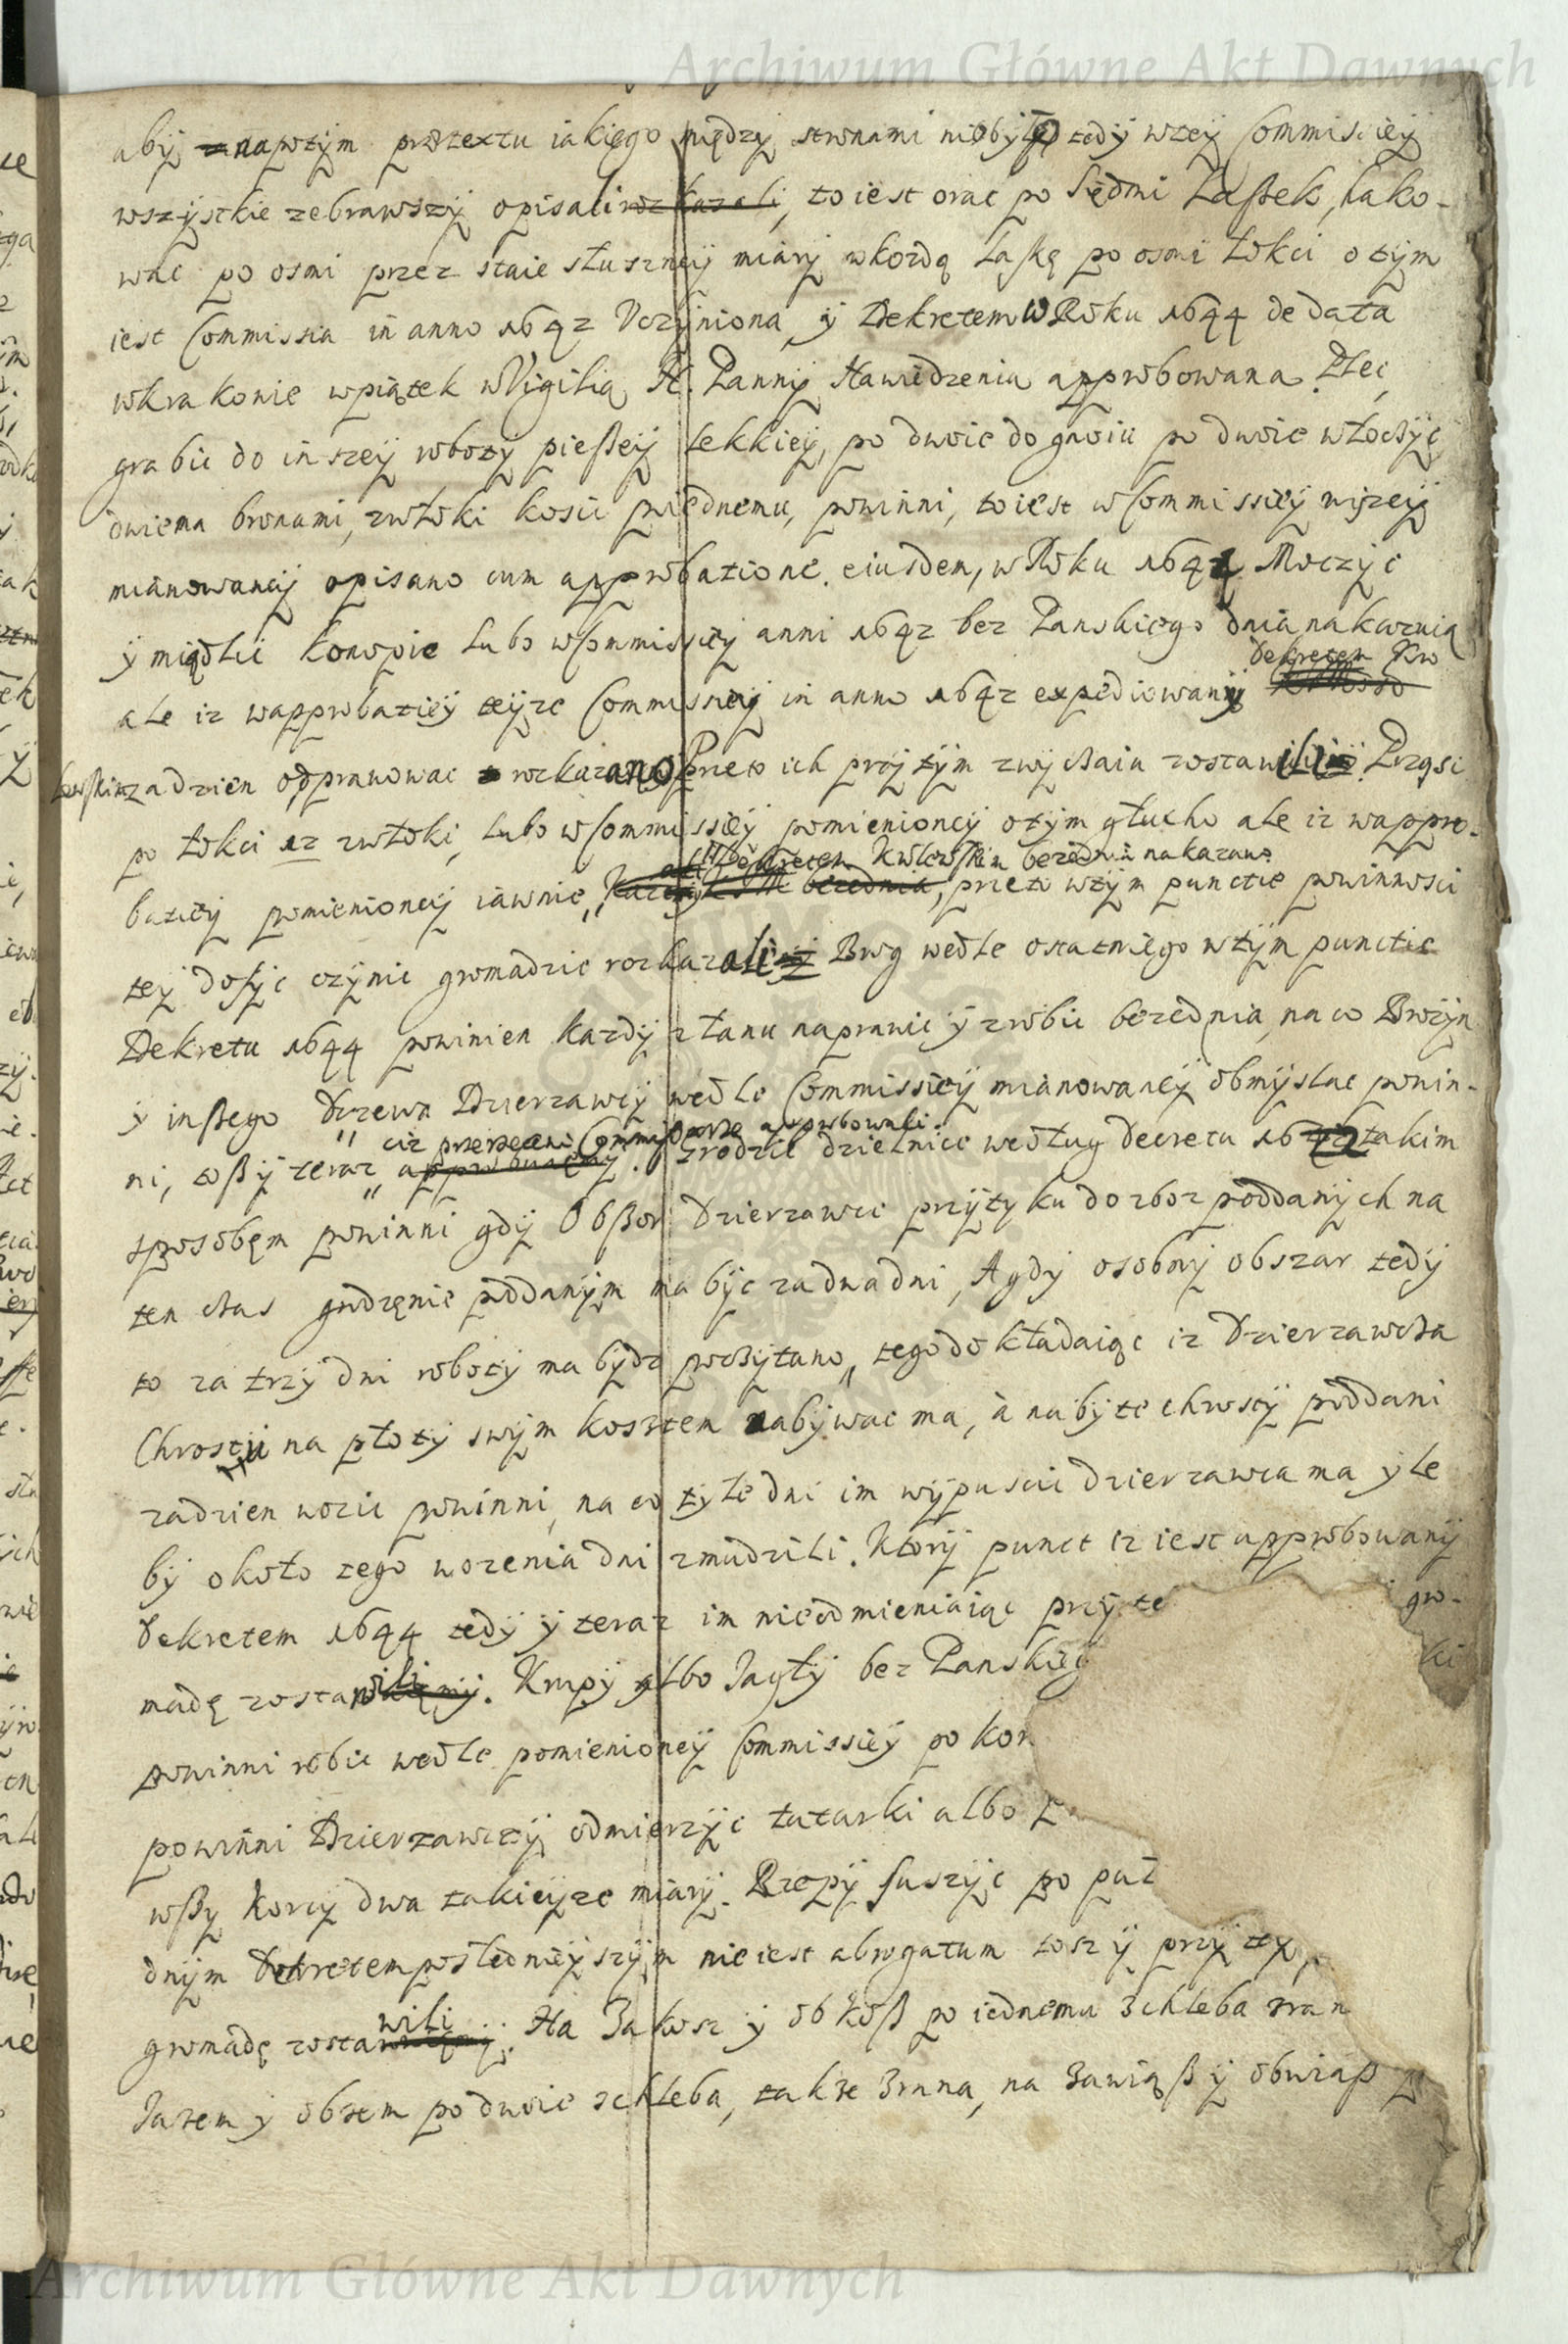 Archiwum Główne Akt Dawnych
aby napotym praetextu iakiego między stronami niebyło tedy wtey Commissiey
wszystkie zebrawszy opisali rozkazali, to iest orac po siedmi Laßek, łako-
wac po osmi przez staie słuszney miary wkozdą Laskę po osmi łokci o tym
iest Commissia in anno 1642 Uczyniona y Dekretem w Roku 1644 de data
wkrakowie wpiątek wVigilią N. Panny Nawiedzenia approbowana. Plec,
grabic do inszey roboty pießey lekkiey, po dwoie do gnoiu po dwoie włoczyc
dwiema bronami, zwłoki kosic poiednemu, powinni, to iest wCommissiey wyzey
mianowaney opisano cum approbatione eiusdem, w Roku 1642 Moczyc
y międlic konopie lubo wCommissiey anni 1642 bez Panskiego dnia nakazuią
Dekretem Kro
ale iz wapprobatiey teyze Commissiey in anno 1642 expediowany
lewskim zadzien odprawowac rozkazano Przeto ich przy tym zwyczaiu zostawili. Prząsc
po łokci iz zwłoki, lubo wCommissiey pomienioney otym głucho ale iz wappro-
Dekretem Krolewskim bezednia nakazano
batiey pomienioney iawnie, bezednia, przeto wtym punctie powinnosci
tey dosyc czynic gromadzie rozkazali Brog wedle ostatniego wtym punctie
Dekretu 1644 powinien kazdy złanu naprawic y zrobic bezednia, na co Drozyn
y inßego Drzewa Dzierzawcy wedle Commissiey mianowaney obmyslac powin-
ciz przerzeceni Commissarze approbowali.
ni, toßy teraz approbuiemy. Grodzic dzielnice według decretu 1642 takim
sposobem powinni gdy Obßor Dzierzawce przytyku do zboz poddanych na
ten czas grodzenie poddanym ma byc zadwadni, A gdy osobny obszar tedy
to za trzy dni roboty ma bydz poczytano, tego dokładaiąc iz Dzierzawcza
Chrosty na płoty swym kosztem nabywac ma, a nabyte chrosty poddani
zadzien wozic powinni, na co tyle dni im wypuscic dzierzawca ma yle
by około tego wozenia dni zmudzili. Ktory punct iz iest approbowany
Dekretem 1644 tedy y teraz im nieodmieniaiąc przy te gro-
madę zostawili. Krupy albo Jagły bez Panskieg ki
powinni robic wedle pomienioney Commissiey po kor
powinni Dzierzawczy odmierzyc tatarki albo
wßy korcy dwa takieyze miary. Rzepy suszyc po puł
dnym Dekretem posledniejszym nie iest abrogatum tosz y przy ty
wili
gromadę zostawuiemy. Na Zakosz y obkoß po iednemu zchleba zran
Zazem y obzem podwoie zchleba, takze zrana, na zawiąß y obwiąß p
Archiwum Główne Akt Dawnych